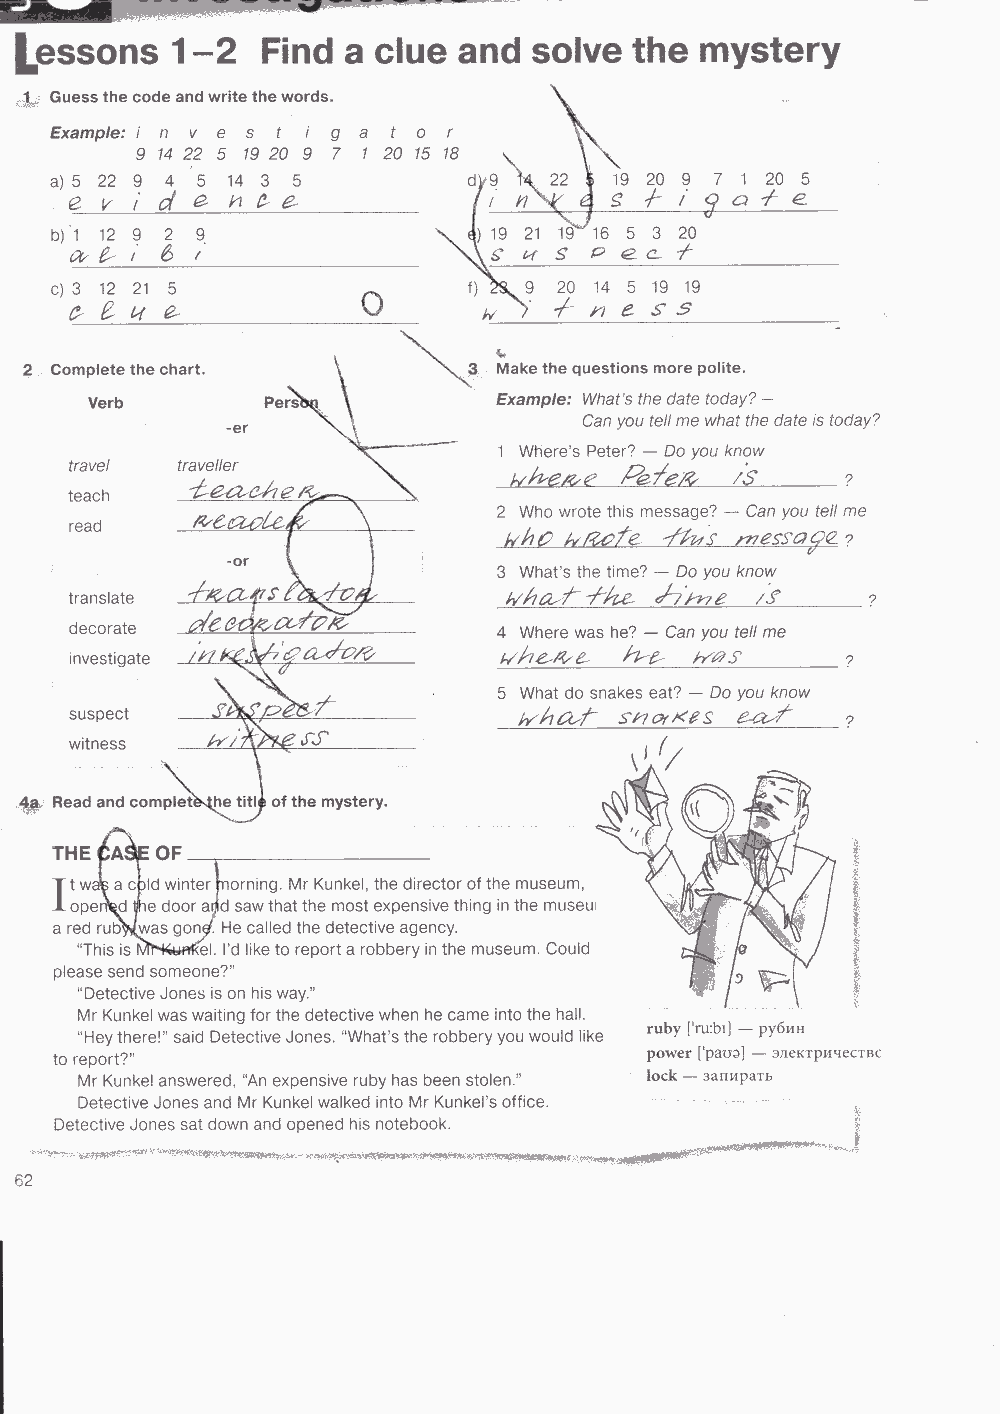 Lessons 1–2 Find a clue and solve the mystery
1 Guess the code and write the words.
Example: i n v e s t i g a t o r
9 14 22 5 19 20 9 7 1 20 15 18
a) 5 22 9 4 5 14 3 5
e v i d e n c e
b) 1 12 9 2 9
a l i b i
c) 3 12 21 5
c l u e
d) 9 14 22 5 19 20 9 7 1 20 5
i n v e s t i g a t e
e) 19 21 19 16 5 3 20
s u s p e c t
f) 23 9 20 14 5 19 19
w i t n e s s
2 Complete the chart.
Verb Person
-er
travel traveller
teach teacher
read reader
-or
translate translator
decorate decorator
investigate investigator
suspect suspect
witness witness
3 Make the questions more polite.
Example: What's the date today? —
Can you tell me what the date is today?
1 Where's Peter? — Do you know
where Peter is ?
2 Who wrote this message? — Can you tell me
who wrote this message ?
3 What's the time? — Do you know
what the time is ?
4 Where was he? — Can you tell me
where he was ?
5 What do snakes eat? — Do you know
what snakes eat ?
4a Read and complete the title of the mystery.
THE CASE OF
It was a cold winter morning. Mr Kunkel, the director of the museum,
opened the door and saw that the most expensive thing in the museu
a red ruby, was gone. He called the detective agency.
“This is Mr Kunkel. I'd like to report a robbery in the museum. Could
please send someone?”
“Detective Jones is on his way.”
Mr Kunkel was waiting for the detective when he came into the hall.
“Hey there!” said Detective Jones. “What's the robbery you would like
to report?”
Mr Kunkel answered, “An expensive ruby has been stolen.”
Detective Jones and Mr Kunkel walked into Mr Kunkel's office.
Detective Jones sat down and opened his notebook.
ruby ['ru:bɪ] — рубин
power ['paʊə] — электричествс
lock — запирать
62